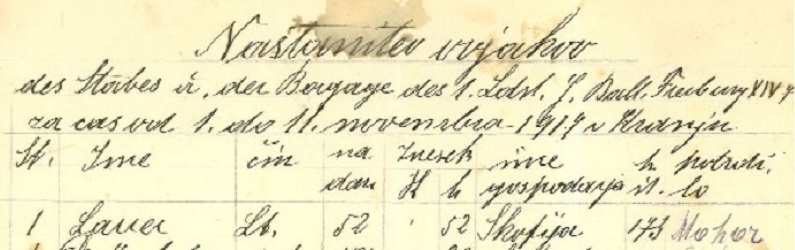 Nastanitev vojakov
des Stabes u. der Bagage des 1. Ldst. J. Batl. Freiburg XIV/7
za čas od 1. do 11. novembra 1917 v Kranju
Št. Ime čin na dan Znesek K h ime gospodarja h. št. potrdilo
1 Lauer Lt. 52 . 52 Škofija 173 Mohor